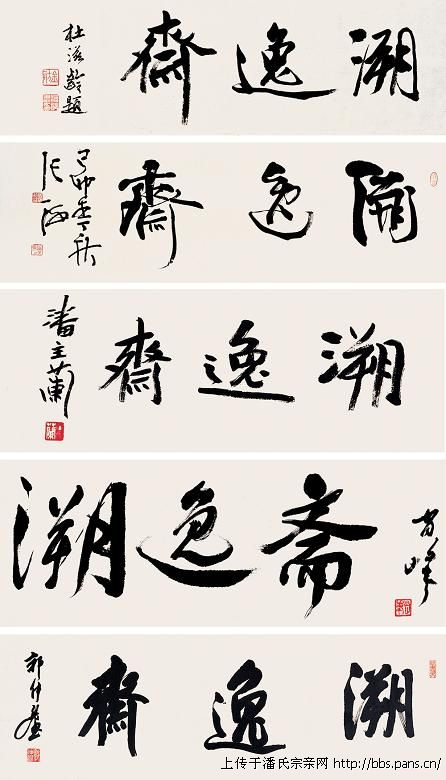 溯逸齋
杜滋齡題
溯逸齋
己卯
張海
溯逸齋
潘主蘭
溯逸斋
溯逸齋
郭仲選
上传于潘氏宗亲网 http://bbs.pans.cn/